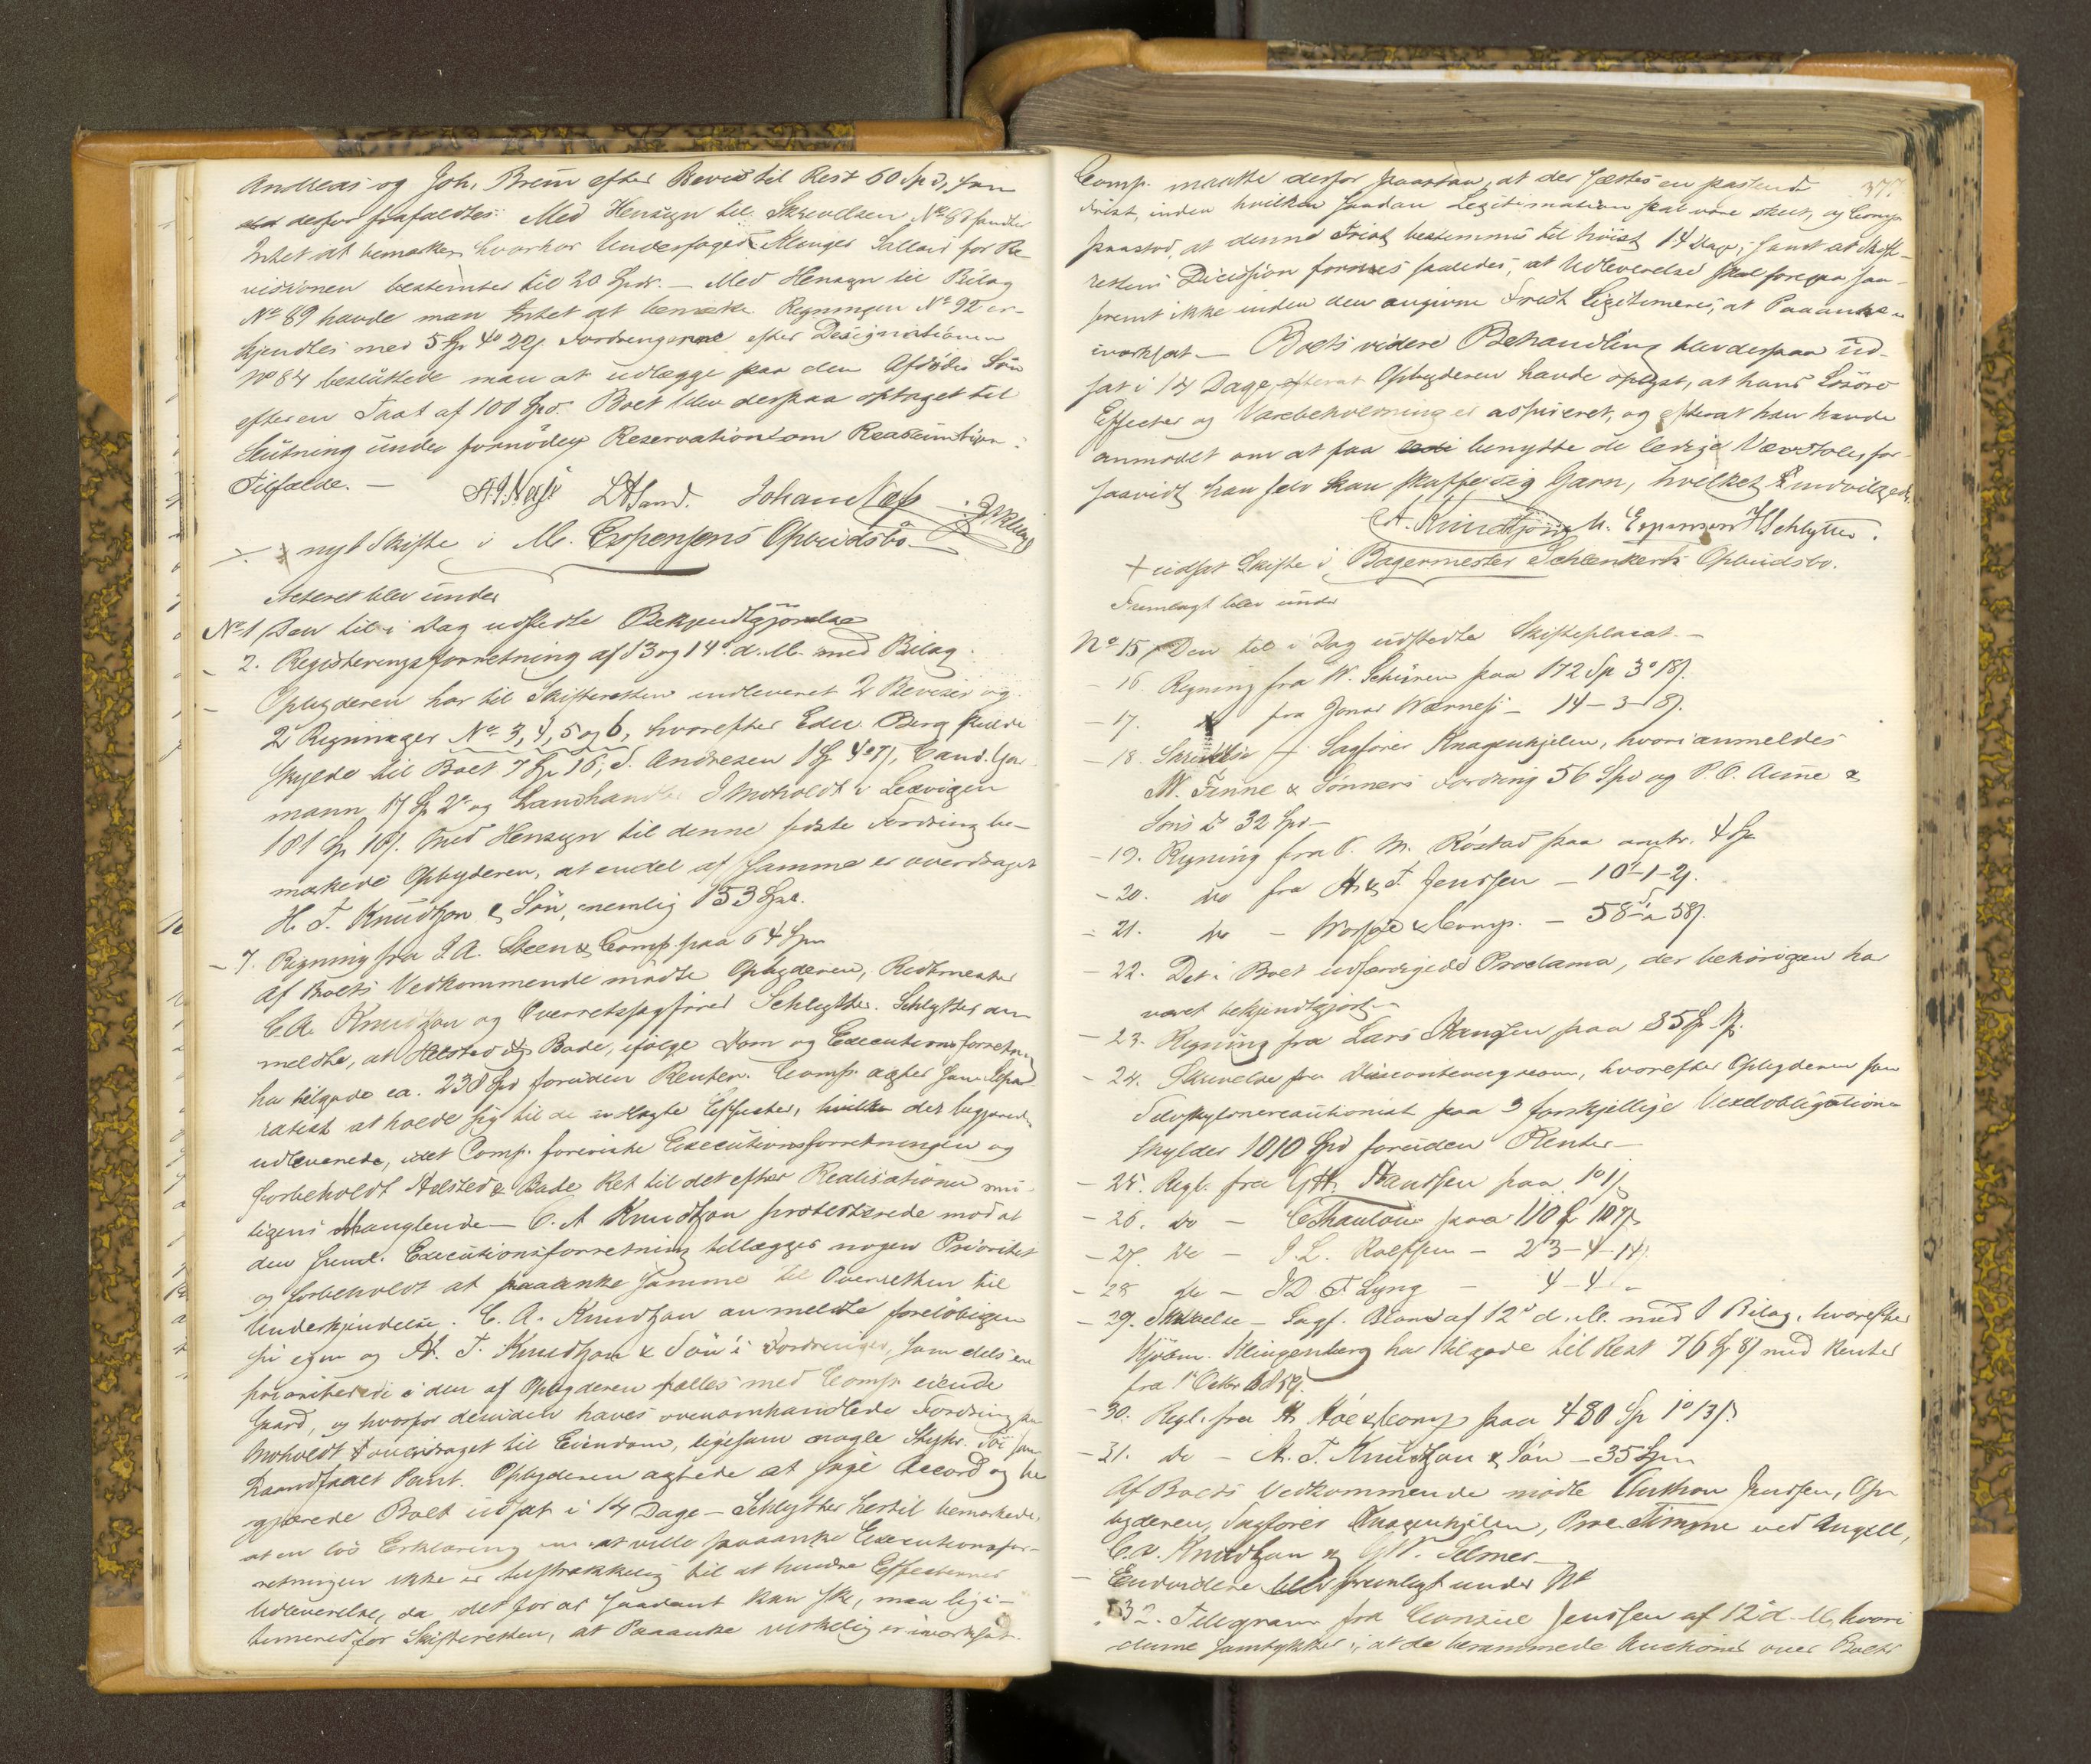 Andreas og Joh. Brun efter Bevis til Rest 60 Spd, som
derfor frafaldtes. Med Hensyn til Skrivelsen No 88 fandtes
Intet at bemærke, hvorhos Undersagf. Klinges Sallair for Re
visionen bestemtes til 20 Spd. – Med Hensyn til Bilag
No 89 havde man Intet at bemærke. Regningen No 92 er-
kjendtes med 5 Sp 4o 22 s. Fordringerne efter Designationen
No 84 besluttede man at udlægge paa den Afdødes Søn
efter en Taxt af 100 Spd. Boet blev derpaa optaget til
Slutning under fornøden Reservation om Reassumtion i
Tilfælde. –
LHSand. Johan
nyt Skifte i M. Espensens Opbudsbo
Acteret blev under
No 1 Den til i Dag udstedte Bekjendtgjørelse
- 2. Registreringsforretning af 13 og 14o d. M. med Bilag.
- Opbyderen har til Skifteretten indleveret 2 Beviser og
2 Regninger No 3, 4, 5 og 6, hvorefter Edv. Berg skulde
skylde til Boet 7 Sp 16 s, S. Andresen 1 Sp 4o 7 s, Cand.
mann 17 Sp 2o og Landhandler I Moholdt i Ledvigen
181 Sp 10 s. Med Hensyn til denne sidste Fordring be-
mærkede Opbyderen, at endel af samme er overdraget
H. T. Knudtzon & Søn, nemlig 153 Spd.
- 7. Regning fra I. A. Steen & Comp. paa 64 Spd
Af Boets Vedkommende mødte Opbyderen, Redtmester
C. A. Knudtzon og Overretssagfører Schlytter. Schlytter an
meldte, at Halsted & Bade, ifølge Dom og Executionsforretning
har tilgode ca. 238 Spd foruden Renter. Comp. agter som Sepa-
ratist at holde sig til de udlagte Effecter, hvilke der begjæredes
udleverede, idet Comp. foreviste Executionsforretningen og
forbeholdt Halsted & Bade Ret til det efter Realisationen mu-
ligens Manglende – C. A. Knudtzon protesterede mod at
den freml. Executionsforretning tillægges nogen Prioritet
og forbeholdt at paaanke samme til Overretten til
Underkjendelse. C. A. Knudtzon anmeldte foreløbigen
sin egen og H. T. Knudtzon & Søn's Fordringer, som dels ere
prioriterede i den af Opbyderen fælles med Comp. eiende
Gaard, og hvorfor desuden haves ovenomhandlede Fordring paa
Moholdt overdraget til Eiendom, ligesom nogle Stykr. Tøi som
haandfaaet Pant. Opbyderen agtede at søge Accord og be
gjærede Boet udsat i 14 Dage – Schlytter hertil bemærkede,
at en løs Erklæring om at ville paaanke Executionsfor-
retningen ikke er tilstrækkelig til at hindre Effecternes
Udleverelse, da det for at saadant kan ske, maa legi-
timeres for Skifteretten, at Paaanke virkelig er iværksat.
377.
Comp. maatte derfor paastaa, at der sættes en passende
Frist, inden hvilken saadan Legitimation skal være skeet, og Comp
paastod, at denne Frist bestemmes til høist 14 Dage, samt at Skift-
rettens Decission formes saaledes, at Udleverelse skal foregaa saa-
fremt ikke inden den angivne Frist legitimeres, at Paaanke er
iværksat – Boets videre Behandling blev derpaa ud-
sat i 14 Dage, efterat Opbyderen havde oplyst, at hans Løsøre
Effecter og Varebeholdning er assureret, og efterat han havde
anmodet om at faa benytte de ledige Vævstole, for-
saavidt han selv kan skaffe sig Garn, hvilket indvilgedes.
CA. Knudtzon M. Espensen HSchlytter.
udsat Skifte i Bagermester Schlenkerts Opbudsbo.
Fremlagt blev under
No 15 Den til i Dag udstedte Skifteplacat. –
- 16. Regning fra W. Schüren paa 172 Sp 3o 18 s.
- 17. do fra Jonas Wærnes – 14 – 3 – 8 s.
- 18. Skrivelse f. Sagfører Knagenhjelm, hvori anmeldes
M. Finne & Sønners Fordring 56 Spd og P. O. Aune &
Søns do 32 Spd –
- 19. Regning fra O. M. Røstad paa omtr. 4 Sp
- 20. do fra H. & F. Jenssen – 10 – 1 – 2 s.
- 21. do – & Comp. – 58
- 22. Det i Boet udfærdigede Proclama, der behørigen har
været bekjendtgjort –
- 23. Regning fra Lars Hansen paa 35
- 24. Skrivelse fra Disconteringscom., hvorefter Opbyderen som
Selvskyldnercautionist paa 3 forskjellige Vexelobligationer
skylder 1010 Spd foruden Renter –
- 25. Regl. fra GH. Hanssen paa 1o 1 s
- 26. do – CThaulow paa 110
- 27. do – I. L. Rolfsen – 23 – 4 – 14 s.
- 28 do – ID F Lyng – 4 – 4 –
- 29. Skrivelse – Sagf. Blom af 12o d. M. med 1 Bilag, hvorefter
Kjøbm. Klingenberg har tilgode til Rest 76 Sp 8 s med Renter
fra 1o Octbr 1859.
- 30. Regl. fra H. Høe & Comp paa 480 Sp 1o 13 s.
- 31. do – H. T. Knudtzon & Søn – 35 Spd
Af Boets Vedkommende mødte Anthon Jenssen, Op-
byderen, Sagfører Knagenhjelm, Timme ved Angell,
C. A. Knudtzon og GW. Selmer –
- Endvidere blev fremlagt under No
32. Telegram fra Consul Jenssen af 12o d. M., hvori
denne samtykker i, at de berammede Auctioner over Boets